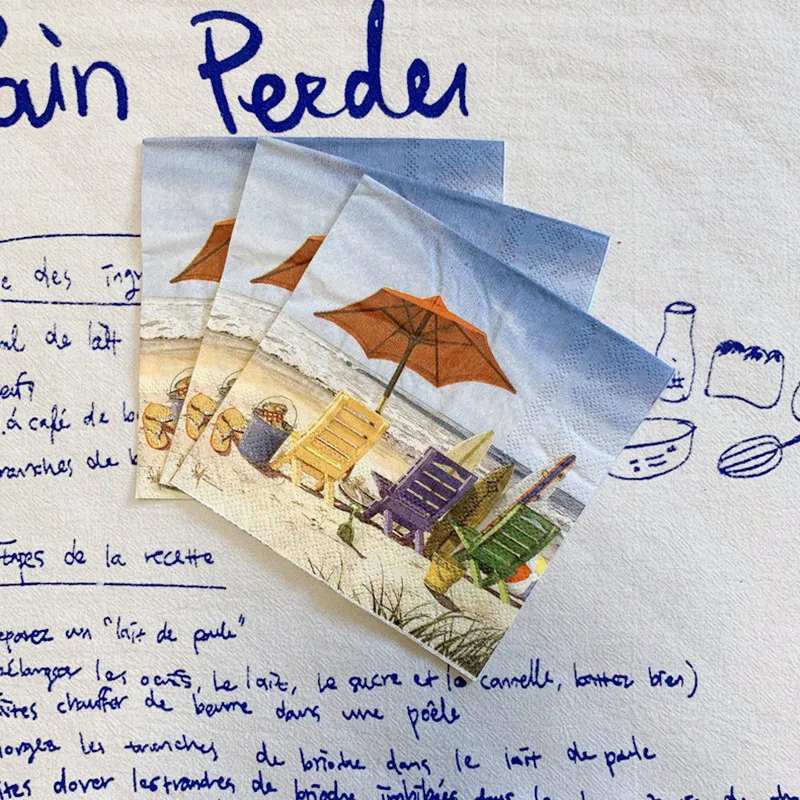 ain Perdu
e des ingr
ml de lait
œufs
à café de
tranches de
tapes de la recette
éparez un "lait de poule"
élangez les oeufs, le lait, le sucre et la cannelle, battez bien)
aites chauffer de beurre dans une poêle
longez les tranches de brioche dans le lait de poule
ites dorer les tranches de brioche imbibées dans le